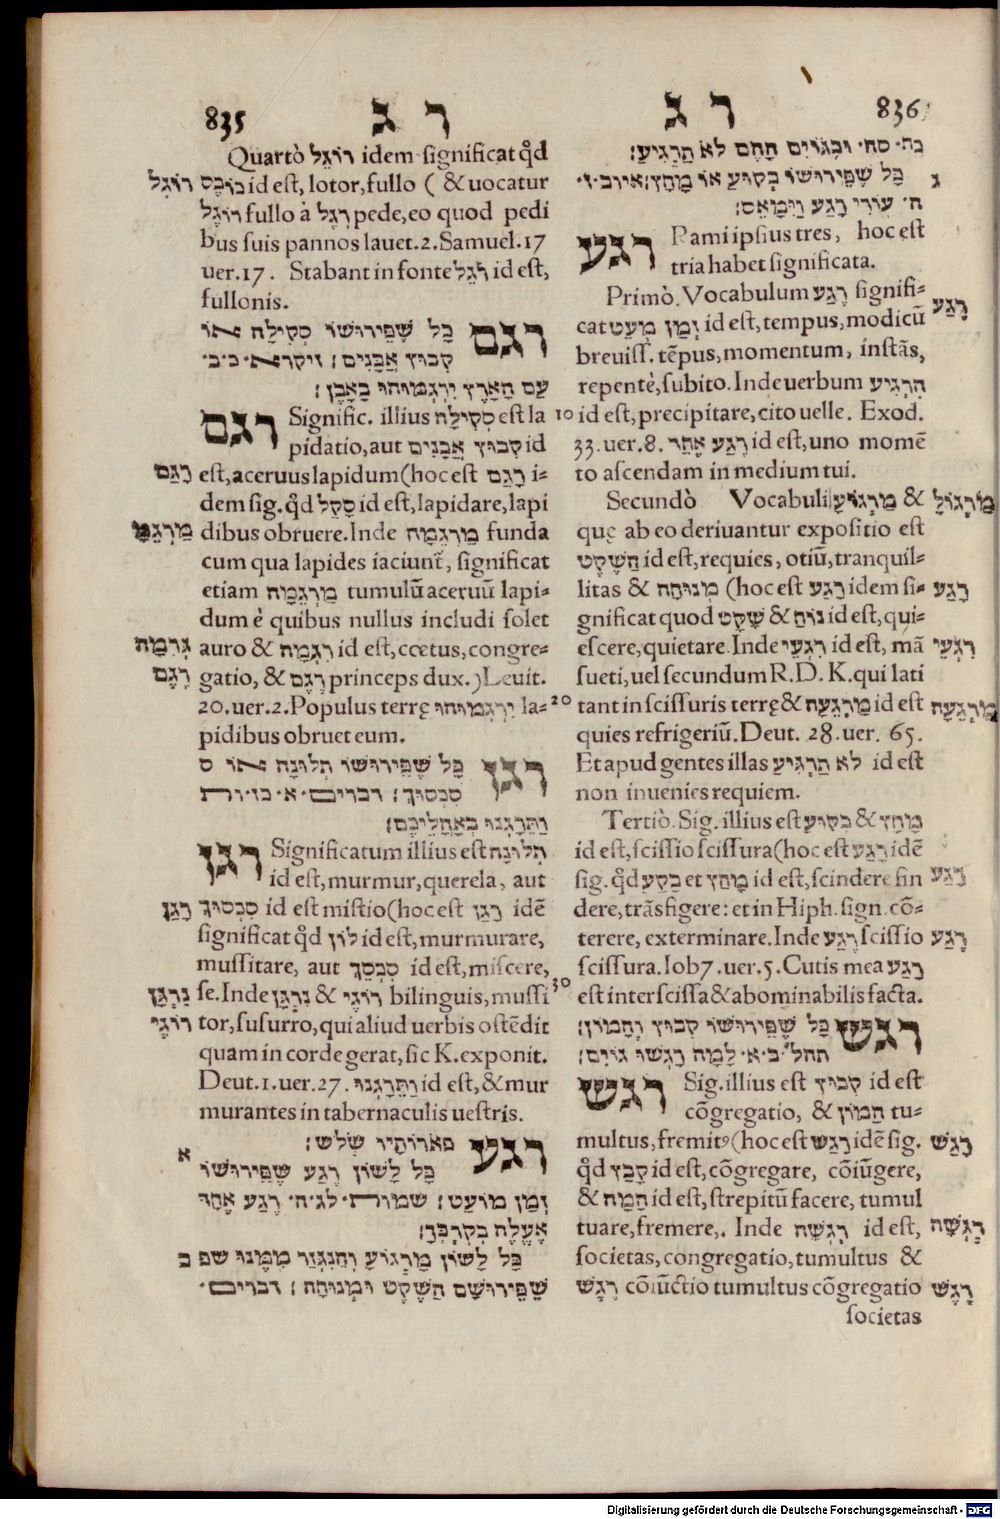 835 ר ג
Quartò רוֹגֵל idem significat qd̃
רוֹגֵל כוֹבֵס id est, lotor, fullo ( & uocatur
רוֹגֵל fullo à רֶגֶל pede, eo quod pedi
bus suis pannos lauet. 2. Samuel. 17
uer. 17. Stabant in fonte רֹגֵל id est,
fullonis.
רגם כָּל שֶׁפֵּירוּשׁוֹ סְקִילָה אוֹ
קִבּוּץ אֲבָנִים׃ ויקרא·כ·ב·
עַם הָאָרֶץ יִרְגְּמוּהוּ בָאָבֶן׃
רגם Signific. illius סְקִילָה est la
pidatio, aut קִבּוּץ אֲבָנִים id
רָגַם est, aceruus lapidum (hoc est רָגַם i-
dem sig. qd̃ סָקַל id est, lapidare, lapi
מַרְגֵּמָה dibus obruere. Inde מַרְגֵּמָה funda
cum qua lapides iaciunt̃, significat
etiam מַרְגֵּמָה tumulũ aceruũ lapi-
dum è quibus nullus includi solet
רִגְמָה auro & רִגְמָה id est, cœtus, congre-
רֶגֶם gatio, & רֶגֶם princeps dux.) Leuit.
20. uer. 2. Populus terrę יִרְגְּמוּהוּ la-
pidibus obruet eum.
רגן כָּל שֶׁפֵּירוּשׁוֹ תְּלוּנָה אוֹ ס
סִכְסוּךְ׃ דברים·א·כז·ות
וַתֵּרָגְנוּ בְאָהֳלֵיכֶם׃
רגן Significatum illius est תְּלוּנָה
id est, murmur, querela, aut
רָגַן סִכְסוּךְ id est mistio (hoc est רָגַן idẽ
significat qd̃ לוּן id est, murmurare,
mussitare, aut סִכְסֵךְ id est, miscere,
נִרְגָּן se. Inde נִרְגָּן & רוֹגֵן bilinguis, mussi
רוֹגֵן tor, susurro, qui aliud uerbis ostẽdit
quam in corde gerat, sic K. exponit.
Deut. 1. uer. 27. וַתֵּרָגְנוּ id est, & mur
murantes in tabernaculis uestris.
רגע פארוֹתָיו שְׁלֹשׁ׃
א כָּל לְשׁוֹן רֶגַע שֶׁפֵּירוּשׁוֹ
זְמַן מוּעָט׃ שמות·לג·ח· רֶגַע אֶחָד
אֶעֱלֶה בְקִרְבְּךָ׃
ב כָּל לְשׁוֹן מַרְגּוֹעַ וְהַנִּגְזַר מִמֶּנּוּ שפ
שֶׁפֵּירוּשָׁם הַשְׁקֵט וּמְנוּחָה׃ דברים·
ר ג 836
כח·סה· וּבַגּוֹיִם הָהֵם לֹא תַרְגִּיעַ׃
ג כָּל שֶׁפֵּירוּשׁוֹ בְּקוּעַ אוֹ מָחַץ׃ איוב·ז·
ה· עוֹרִי רָגַע וַיִּמָּאֵס׃
רגע Rami ipsius tres, hoc est
tria habet significata.
רֶגַע Primò. Vocabulum רֶגַע signifi-
cat זְמַן מְעַט id est, tempus, modicũ
breuiss. tẽpus, momentum, instãs,
repentè, subito. Inde uerbum הִרְגִּיעַ
10 id est, precipitare, cito uelle. Exod.
33. uer. 8. רֶגַע אֶחָד id est, uno momẽ
to ascendam in medium tui.
מַרְגּוֹעַ Secundò Vocabuli מַרְגּוֹעַ &
quę ab eo deriuantur expositio est
הַשְׁקֵט id est, requies, otiũ, tranquil-
רָגַע litas & מְנוּחָה (hoc est רָגַע idem si-
gnificat quod שָׁקַט & נוּחַ id est, qui-
רִגְעֵי escere, quietare. Inde רִגְעֵי id est, mã
sueti, uel secundum R. D. K. qui lati
20 מַרְגֵּעָה tant in scissuris terrę & מַרְגֵּעָה id est
quies refrigeriũ. Deut. 28. uer. 65.
Et apud gentes illas לֹא תַרְגִּיעַ id est
non inuenies requiem.
Tertiò. Sig. illius est בְּקוּעַ & מָחַץ
id est, scissio scissura (hoc est רָגַע idẽ
רָגַע sig. qd̃ בָּקַע et מָחַץ id est, scindere fin
dere, trãsfigere: et in Hiph. sign. cõ-
רֶגַע terere, exterminare. Inde רֶגַע scissio
scissura. Iob 7. uer. 5. Cutis mea רָגַע
30 est interscissa & abominabilis facta.
רגש כָּל שֶׁפֵּירוּשׁוֹ קִבּוּץ וְהָמוֹן׃
תהל׳·ב·א· לָמָּה רָגְשׁוּ גוֹיִם׃
רגש Sig. illius est קִבּוּץ id est
cõgregatio, & הָמוֹן tu-
רָגַשׁ multus, fremitꝰ (hoc est רָגַשׁ idẽ sig.
qd̃ קָבַץ id est, cõgregare, cõiũgere,
& הָמָה id est, strepitũ facere, tumul
רִגְשָׁה tuare, fremere,. Inde רִגְשָׁה id est,
societas, congregatio, tumultus &
רֶגֶשׁ רֶגֶשׁ cõiũctio tumultus cõgregatio
societas
Digitalisierung gefördert durch die Deutsche Forschungsgemeinschaft - DFG